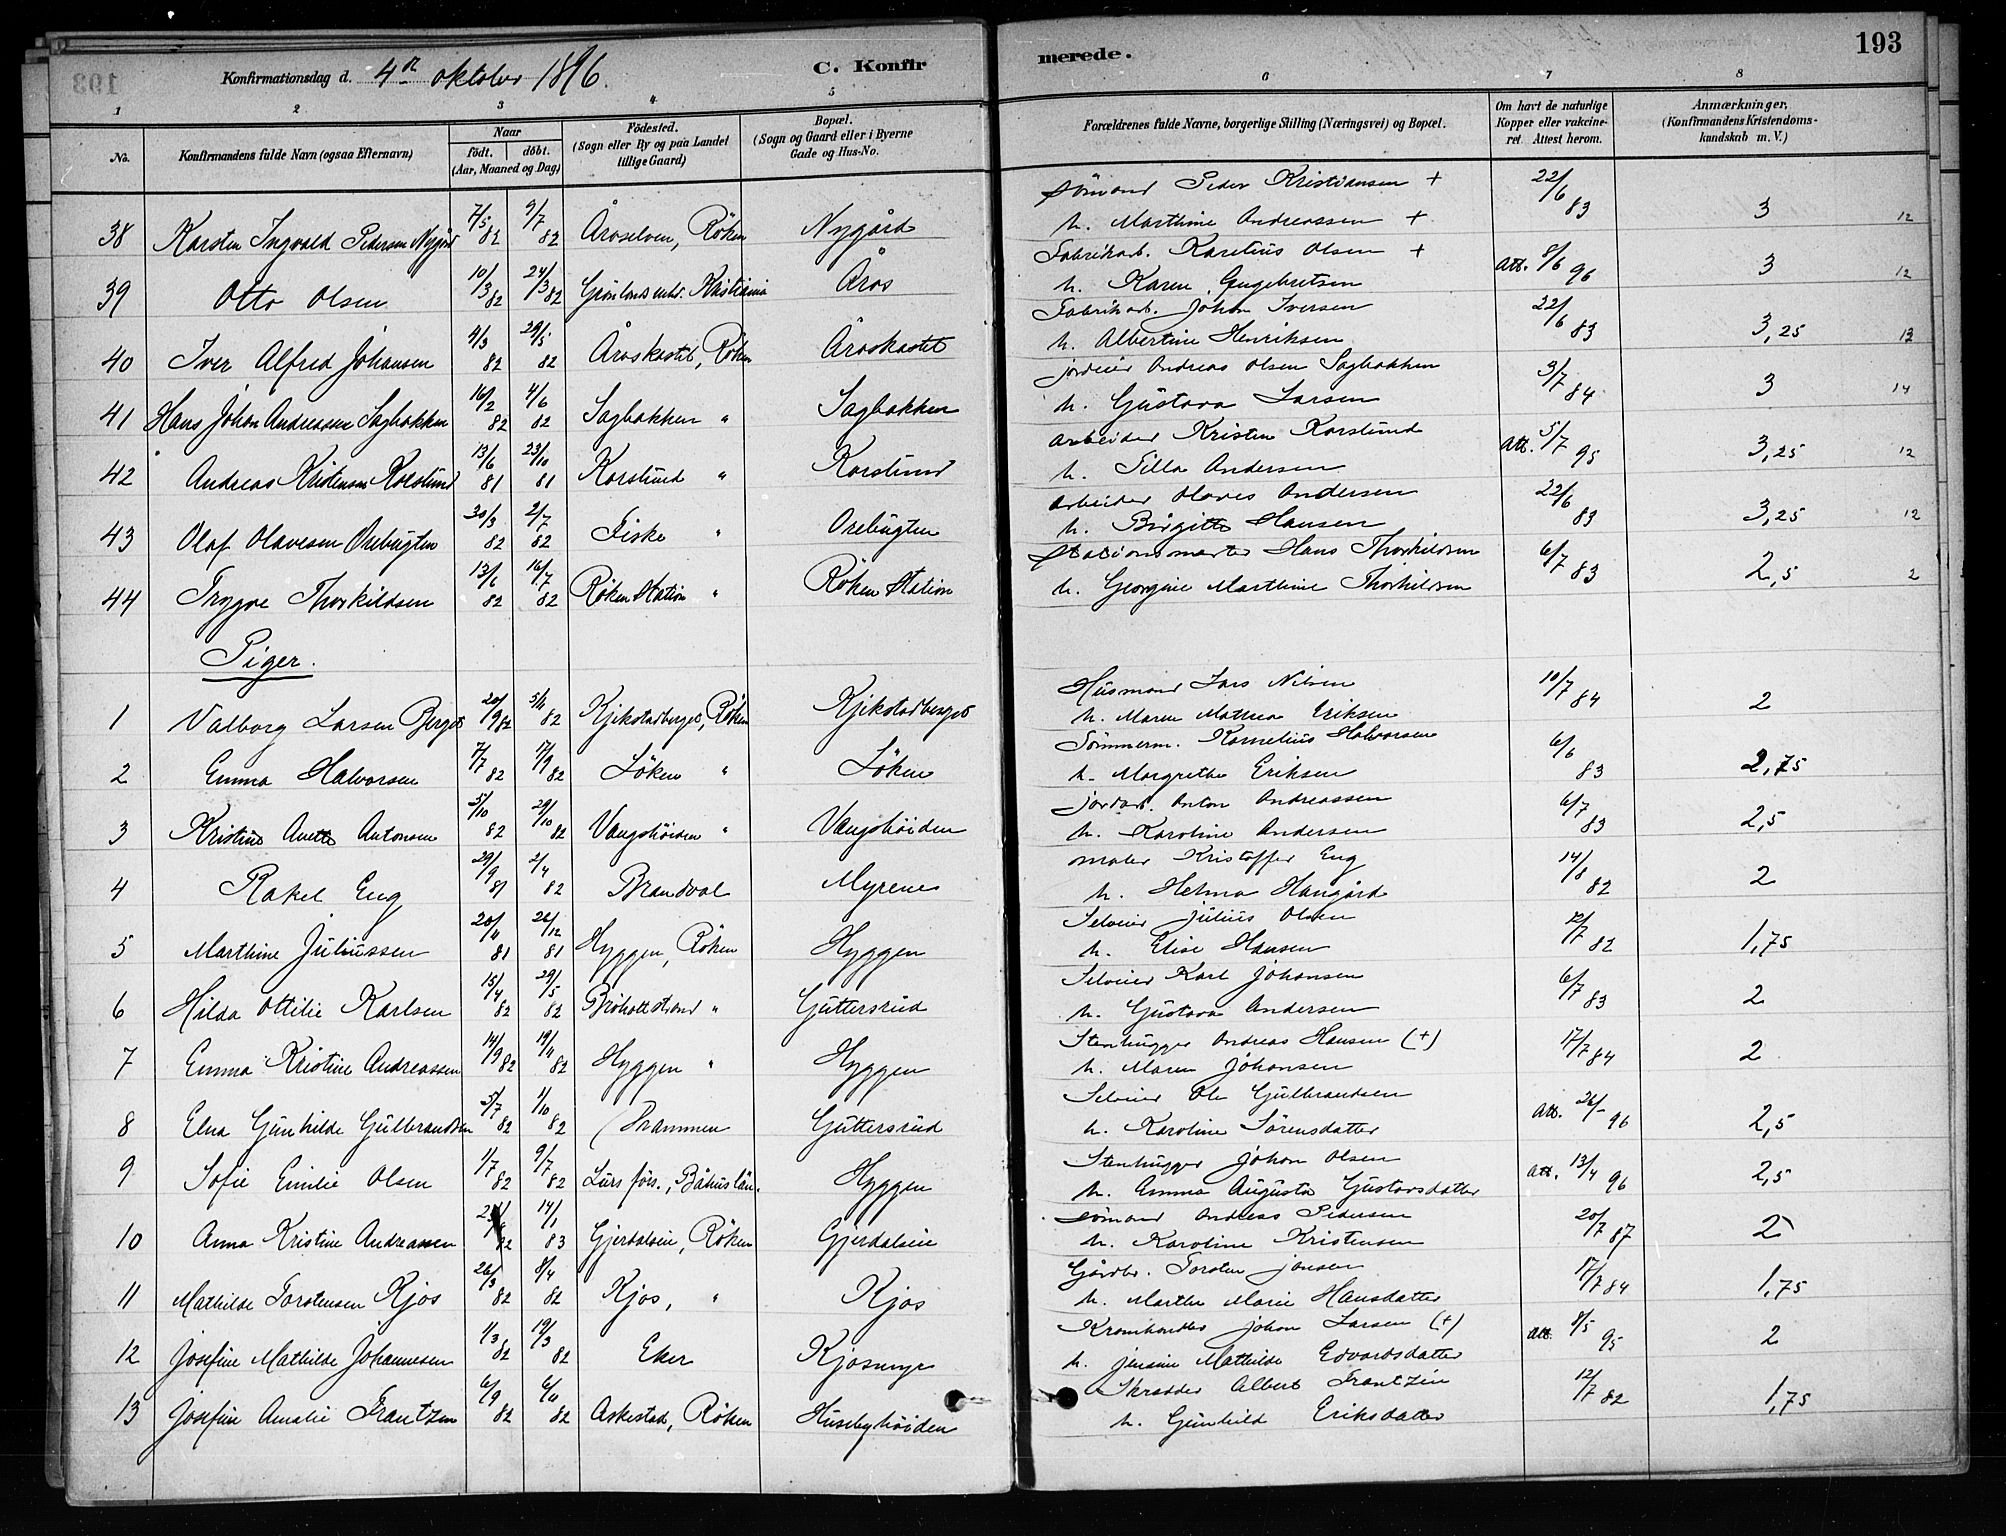 193
Konfirmationsdag d. 4de oktober 1896.
C. Konfirmerede.
1 2 3 4 5 6 7 8
No. Konfirmandens fulde Navn (ogsaa Efternavn) Naar födt. döbt. (Aar, Maaned og Dag) Födested. (Sogn eller By og paa Landet tillige Gaard) Bopæl. (Sogn og Gaard eller i Byerne Gade og Hus-No. Forældrenes fulde Navne, borgerlige Stilling (Næringsvei) og Bopæl. Om havt de naturlige Kopper eller vakcineret Attest herom. Anmærkninger, (Konfirmandens Kristendomskundskab m. V.)
Sömand Peder Kristiansen +
38 Karsten Ingvald Pedersen Nygård 7/5 82 9/7 82 Åroselven, Röken Nygård h. Marthine Andreassen + 22/6 83 3 12
Fabrikarb. Karelius Olsen +
39 Otto Olsen 10/3 82 24/3 82 Grönlands mh. Kristiania Åros h. Karen Engebretsen Att. 8/6 96 3 12
Fabrikarb. Johan Iversen
40 Iver Alfred Johansen 4/3 82 29/5 82 Åroskastet, Röken Åroskastet h. Albertine Henriksen 22/6 83 3,25 13
jordeier Andreas Olsen Sagbakken
41 Hans Johan Andreassen Sagbakken 16/2 82 4/6 82 Sagbakken " Sagbakken h. Gustava Larsen 3/7 84 3 14
Arbeider Kristen Korslund
42 Andreas Kristensen Korslund 13/6 81 23/10 81 Korslund " Korslund h. Silla Andersen Att. 5/7 95 3,25 12
Arbeider Olaves Andersen
43 Olaf Olavesen Orebugten 30/3 82 2/7 82 Fiske " Orebugten h. Birgitte Hansen 22/6 83 3,25 12
Stationsmester Hans Thorkildsen
44 Trygve Thorkildsen 13/6 82 16/7 82 Röken Station " Röken Station h. Georgine Marthine Thorkildsen 6/7 83 2,5 2
Piger.
Husmand Lars Nilsen
1 Valborg Larsen Berget 20/9 82 5/11 82 Kjekstadberget, Röken Kjekstadberget h. Maren Mathea Eriksen 10/7 84 2
Tömmerm. Kornelius Halvorsen
2 Emma Halvorsen 7/7 82 17/9 82 Löken " Löken h. Margrethe Eriksen 6/6 83 2,75
jordarb. Anton Andreassen
3 Kristine Anette Antonsen 5/10 82 29/10 82 Vangshöiden " Vangshöiden h. Karoline Andersen 6/7 83 2,5
maler Kristoffer Eng
4 Rakel Eng 29/9 81 2/4 82 Brandval Myrene h. Helma Haugård 14/8 82 2
Selveier Julius Olsen
5 Marthine Juliussen 20/11 81 26/12 81 Hyggen, Röken Hyggen h. Elise Hansen 12/7 82 1,75
Selveier Karl Johansen
6 Hilda Ottilie Karlsen 15/4 82 29/5 82 Bröholtstrand " Guttersrud h. Gustava Andersen 6/7 83 2
Stenhugger Andreas Hansen (+)
7 Emma Kristine Andreassen 14/9 82 19/11 82 Hyggen " Hyggen h. Maren Johansen 17/7 84 2
Selveier Ole Gulbrandsen
8 Elna Gunhilde Gulbrandsen 5/7 82 1/10 82 Drammen Guttersrud h. Karoline Sörensdatter Att. 26/- 96 2,5
Stenhugger Johan Olsen
9 Sofie Emilie Olsen 1/7 82 9/7 82 Lurs förs., Båhuslän. Hyggen h. Emma Augusta Gustavsdatter Att. 13/4 96 2,5
Sömand Andreas Pedersen
10 Anna Kristine Andreassen 82 14/1 83 Gjerdalseie, Röken Gjerdalseie h. Karoline Kristensen 20/7 87 2
Gårdbr. Torsten Jonsen
11 Mathilde Torstensen Kjos 26/3 82 8/4 82 Kjos, " Kjos h. Marthe Marie Hansdatter 17/7 84 1,75
Kramhandler Johan Larsen (+)
12 Josefine Mathilde Johannesen 1/3 82 19/3 82 Eker Kjosmyr h. Jensine Mathilde Edvardsdatter Att. 8/5 95 2
Skrædder Albert Frantzen
13 Josefine Amalie Frantzen 6/9 82 6/11 82 Askestad, Röken Husebyhöiden h. Gunhild Eriksdatter 12/7 82 1,75